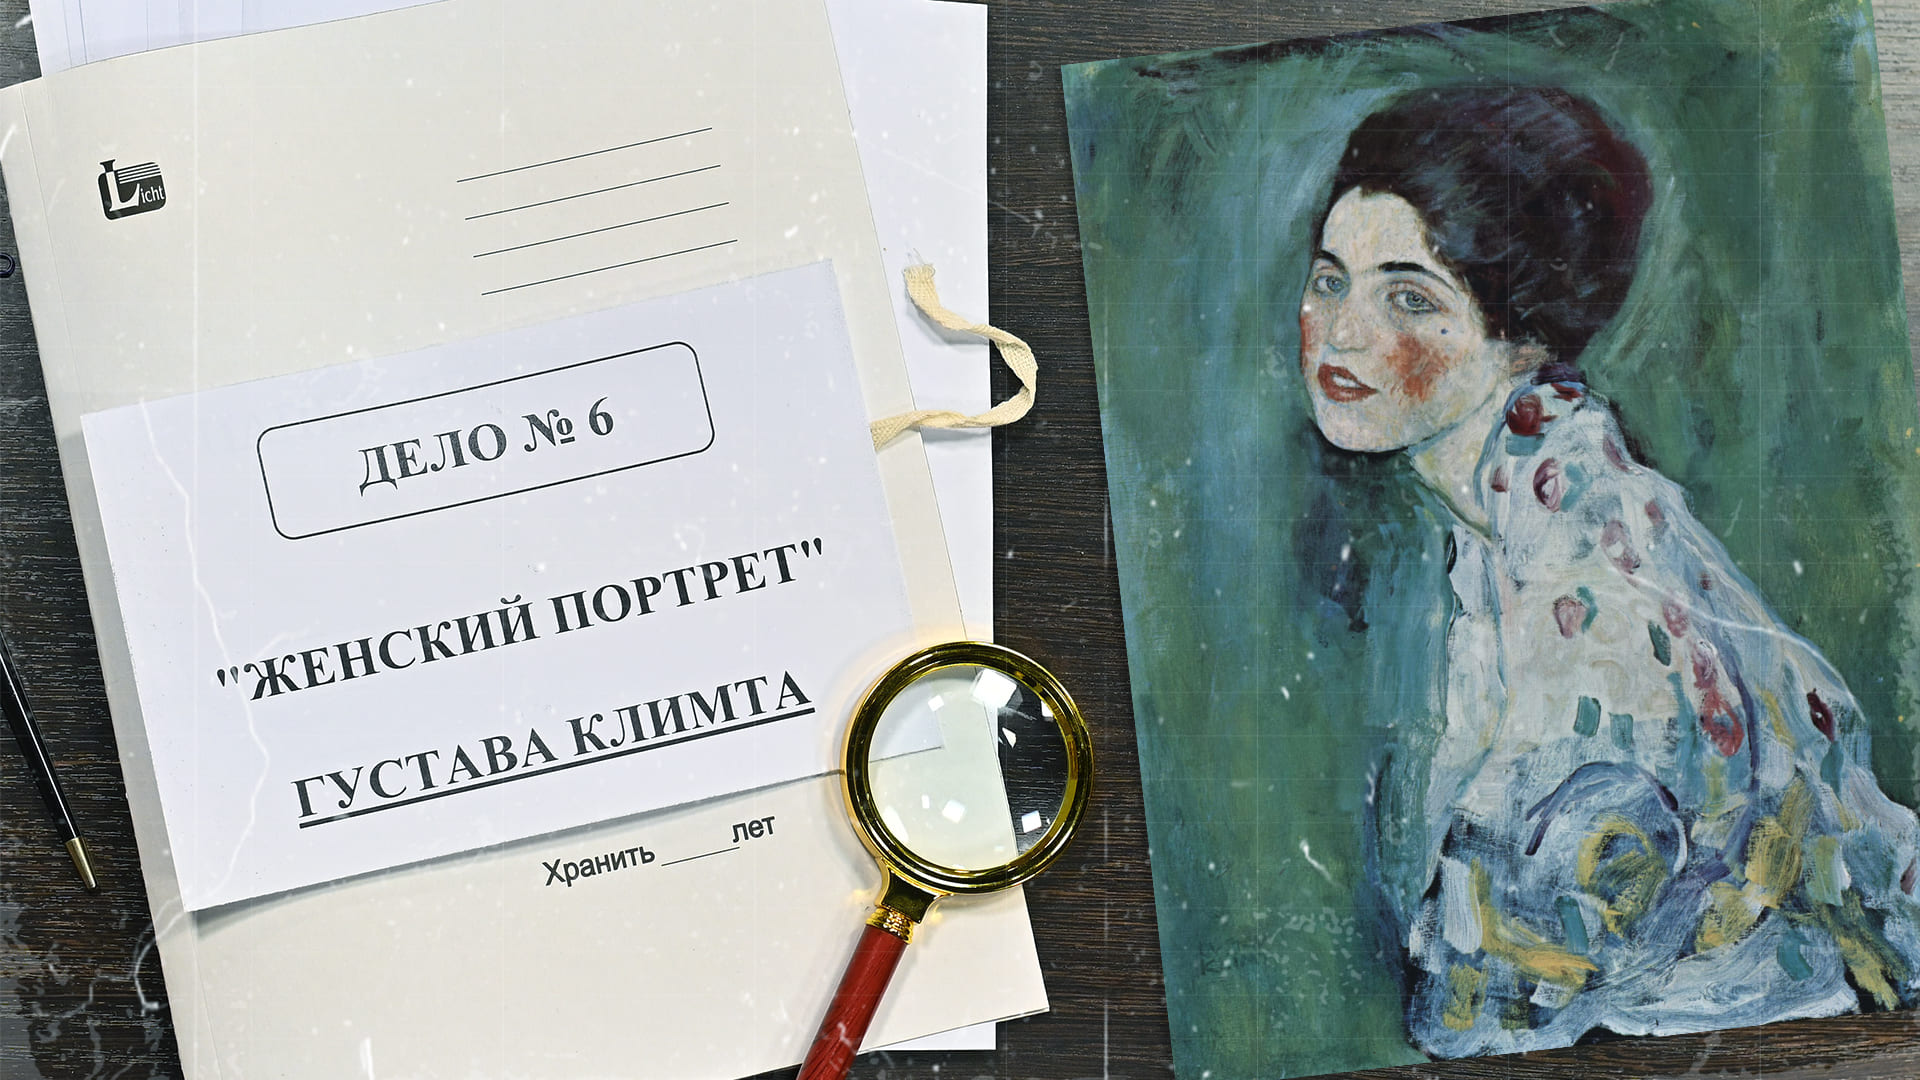 Licht
ДЕЛО № 6
"ЖЕНСКИЙ ПОРТРЕТ"
ГУСТАВА КЛИМТА
Хранить _____лет